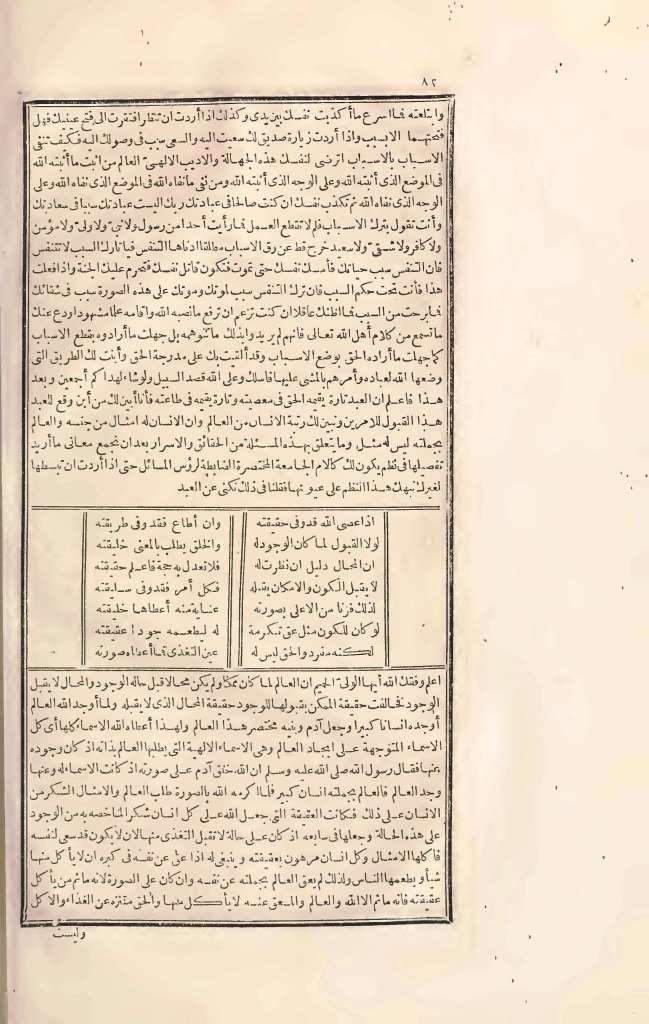 ٨٢
وابتلعته فما أسرع ما أكذبت نفسك بين يدى وكذلك اذا أردت ان تنظر افتقرت الى فتح عينيك فهل
فتحتهما الا بسبب واذا أردت زيارة صديق لك سعيت اليه والسعى سبب فى وصولك اليه فكيف تنفى
الاسباب بالاسباب اترضى لنفسك هذه الجهالة والاديب الالهى العالم من اثبت ما أثبته الله
فى الموضع الذى أثبته الله وعلى الوجه الذى أثبته الله ومن نفى ما نفاه الله فى الموضع الذى نفاه الله وعلى
الوجه الذى نفاه الله ثم تكذب نفسك ان كنت صالحا فى عبادتك ربك اليست عبادتك سببا فى سعادتك
وأنت تقول بترك الاسباب فلم لا تقطع العمل فما رأيت أحدا من رسول ولا نبى ولا ولى ولا مؤمن
ولا كافر ولا شقى ولا سعيد خرج قط عن رق الاسباب مطلقا ادناها التنفس فيا تارك السبب لا تتنفس
فان التنفس سبب حياتك فأمسك نفسك حتى تموت فتكون قاتل نفسك فتحرم عليك الجنة واذا فعلت
هذا فأنت تحت حكم السبب فان ترك التنفس سبب لموتك وموتك على هذه الصورة سبب فى شقائك
فما برحت من السبب فما اظنك عاقلا ان كنت تزعم ان ترفع ما نصبه الله وأقامه علما مشهودا ودع عنك
ما تسمع من كلام أهل الله تعالى فانهم لم يريدوا بذلك ما تتوهمه بل جهلت ما أرادوه بقطع الاسباب
كما جهلت ما أراده الحق بوضع الاسباب وقد ألقيت بك على مدرجة الحق وأبنت لك الطريق التى
وضعها الله لعباده وأمرهم بالمشى عليها فاسلك وعلى الله قصد السبيل ولو شاء لهداكم أجمعين وبعد
هذا فاعلم ان العبد تارة يقيمه الحق فى معصيته وتارة يقيمه فى طاعته فأنا أبين لك من أين وقع للعبد
هذا القبول للامرين ونبين لك رتبة الانسان من العالم وان الانسان له امثال من جنسه والعالم
بجملته ليس له مثل وما يتعلق بهذه المسئلة من الحقائق والاسرار بعد ان نجمع معانى ما أريد
تفصيلها فى نظم يكون لك كالام الجامعة المختصرة الضابطة لرؤس المسائل حتى اذا أردت ان تبسطها
لغيرك نبهك هذا النظم على عيونها فقلنا فى ذلك نكنى عن العبد
اذا عصى الله قد وفى حقيقته وان أطاع فقد وفى طريقته
لولا القبول لما كان الوجود له والخلق يطلب بالمعنى خليقته
ان المحال دليل ان نظرت له فلا تعدل به حجة فاعلم حقيقته
لا يقبل الكون والامكان يقبله فكل أمر فقد وفى سليقته
لذلك فزنا من الاعلى بصورته عناية منه أعطاها خليقته
لو كان للكون مثل عق تكرمة له ليطعمه جودا عقيقته
لكنه مفرد والحق ليس له عين التغذى فما أعطاه صورته
اعلم وفقك الله أيها الولى الحميم ان العالم لما كان ممكنا ولم يكن محالا قبل حالة الوجود والمحال لا يقبل
الوجود فخالفت حقيقة الممكن بقبولها للوجود حقيقة المحال الذى لا يقبله ولما أوجد الله العالم
أوجده انسانا كبيرا وجعل آدم وبنيه مختصر هذا العالم ولهذا أعطاه الله الاسماء كلها أى كل
الاسماء المتوجهة على ايجاد العالم وهى الاسماء الالهية التى يطلبها العالم بذاته اذ كان وجوده
عنها فقال رسول الله صلى الله عليه وسلم ان الله خلق آدم على صورته اذ كانت الاسماء له وعنها
وجد العالم فالعالم بجملته انسان كبير فلما اكرمه الله بالصورة طلب العالم والامثال الشكر من
الانسان على ذلك فكانت العقيقة التى جعل الله على كل انسان شكر الما خصه به من الوجود
على هذه الحالة وجعلها فى سابعه اذ كان على حالة لا تقبل التغذى منها لان لا يكون قد سعى لنفسه
فأكلها الامثال وكل انسان مرهون بعقيقته وينبغى له اذا عق عن نفسه فى كبره ان لا يأكل منها
شيأ ويطعمها الناس ولذلك لم يعق العالم بجملته عن نفسه وان كان على الصورة لانه ما ثم من يأكل
عقيقته فانه ما ثم الا الله والعالم والمعق عنه لا يأكل منها والحق متنزه عن الغذاء والاكل
وليست